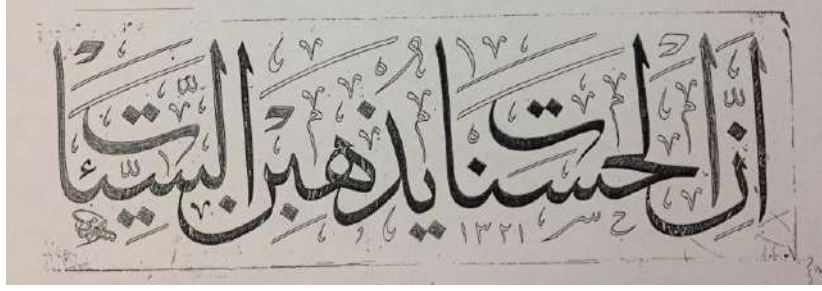 إنّ الحسنات يذهبن السيّئات
١٣٢١